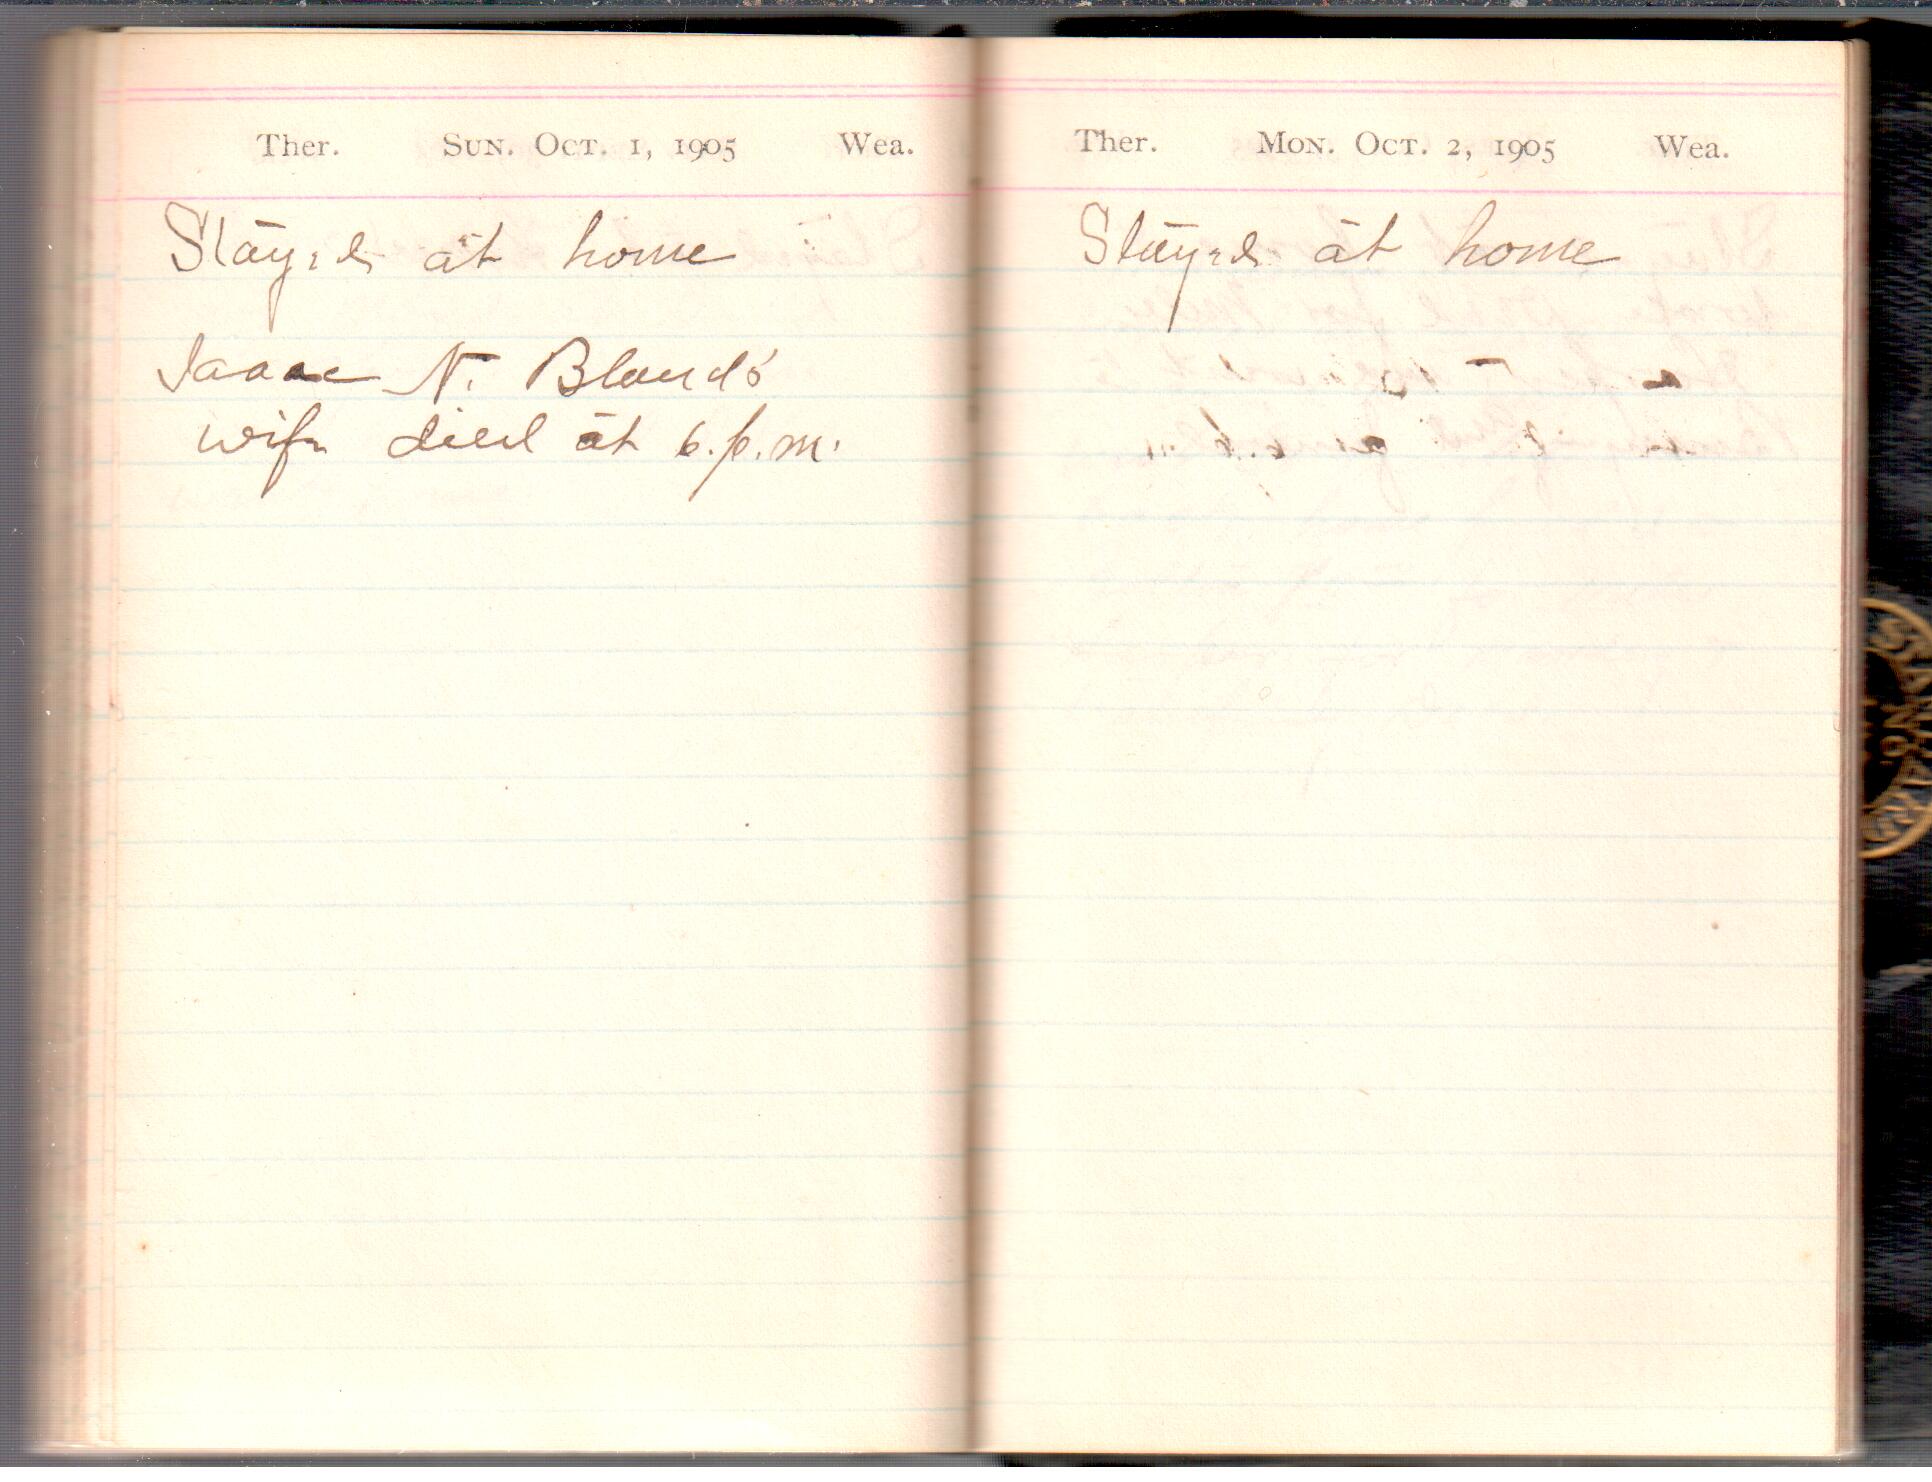 Ther. Sun. Oct. 1, 1905 Wea.
Stayed at home
Isaac N. Bland's
wife died at 6.p.m.
Ther. Mon. Oct. 2, 1905 Wea.
Stayed at home